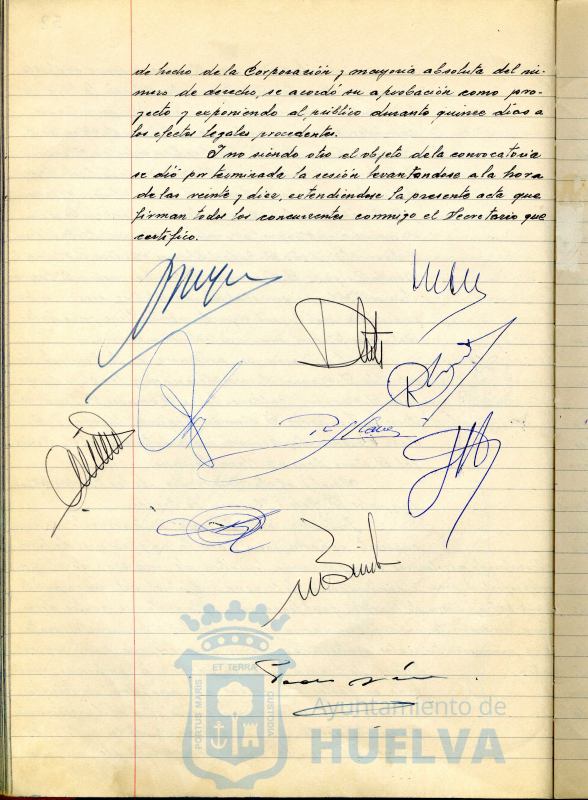 de hecho de la Corporación y mayoría absoluta del nú-
mero de derecho, se acordó su aprobación como pro-
yecto y exponiendo al público durante quince días a
los efectos legales procedentes.
Y no siendo otro el objeto de la convocatoria
se dió por terminada la sesión levantandose a la hora
de las veinte y diez, extendiendose la presente acta que
firman todos los concurrentes conmigo el Secretario que
certifico.
ET TERRA
PORTUS MARIS
CUSTODIA
Ayuntamiento de
HUELVA